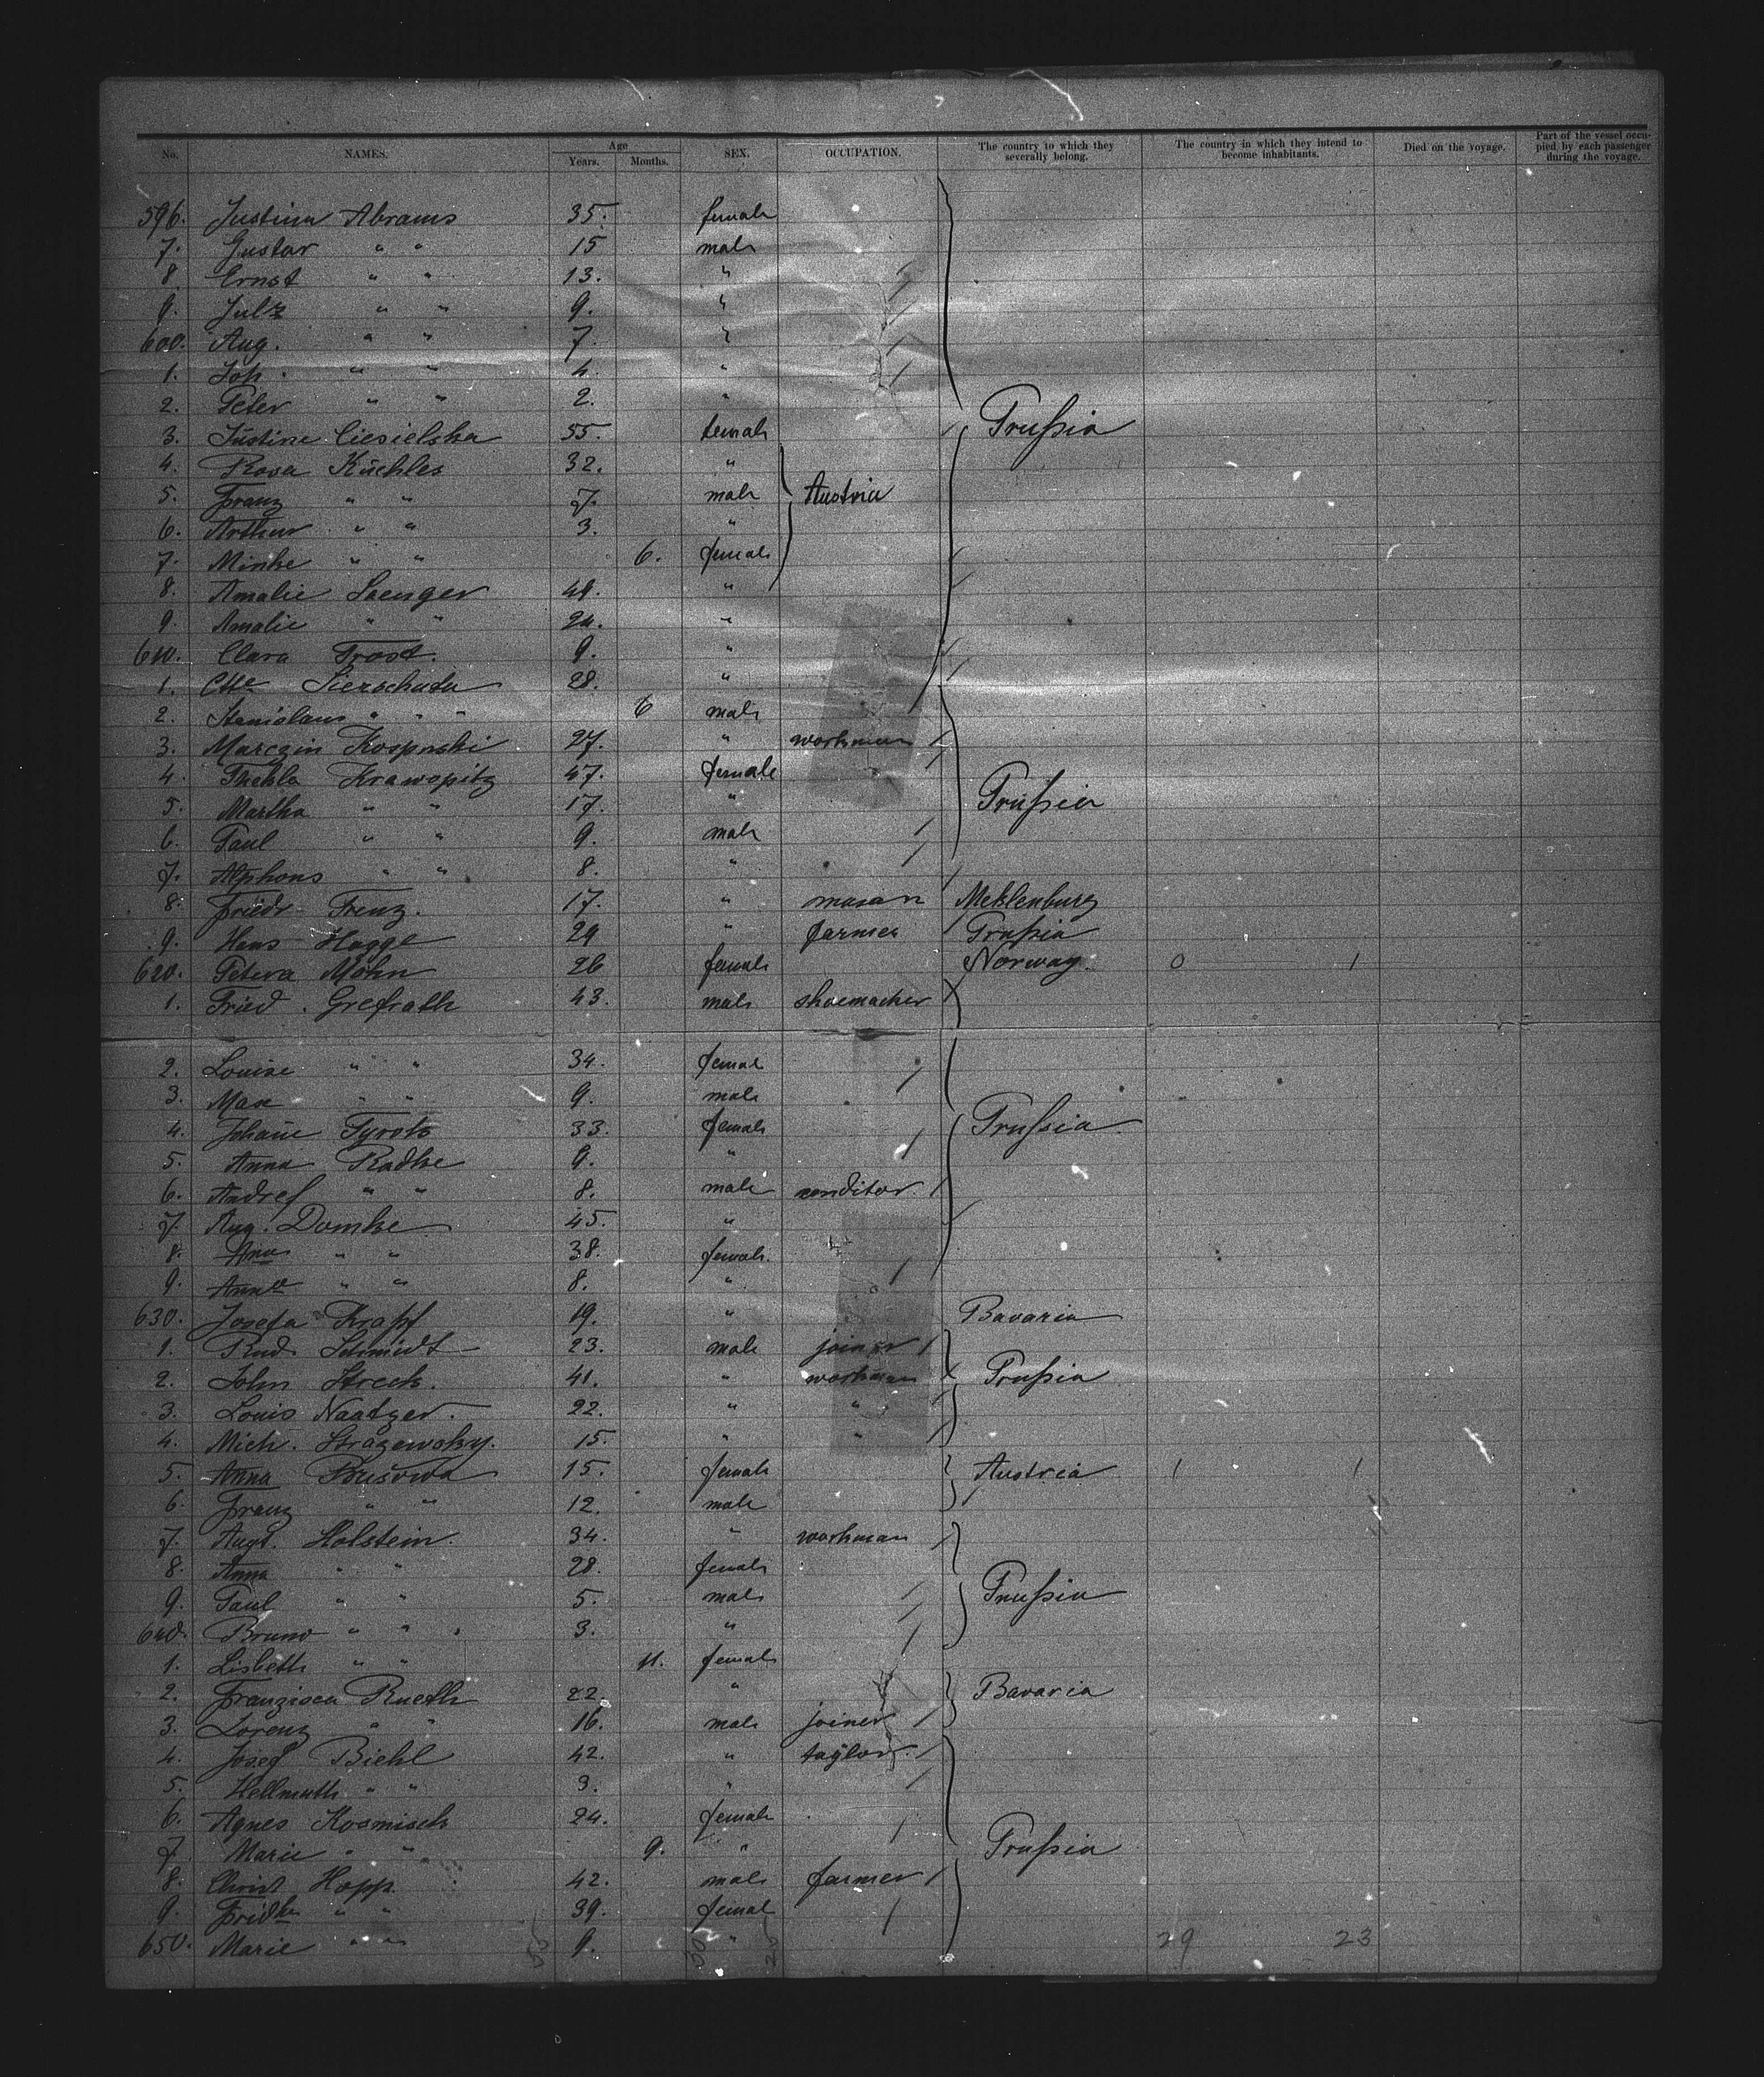 No. NAMES. Age Years. Months. SEX. OCCUPATION. The country to which they severally belong. The country in which they intend to become inhabitants. Died on the voyage. Part of the vessel occupied by each passenger during the voyage.
596. Justina Abrams 35. female
7. Gustav " " 15 male
8. Ernst " " 13. "
9. Julz " " 9. "
600. Aug. " " 7. "
1. Joh. " " 4. "
2. Peter " " 2. "
3. Justine Ciesielska 55. female Prußia
4. Rosa Küchler 32. "
5. Franz " " 7. male Austria
6. Arthur " " 3. "
7. Minke " " 6. female
8. Amalie Saenger 49. "
9. Amalie " " 24. "
610. Clara Trost. 9. "
1. 28. "
2. Stanislaus " " 6 male
3. Marczin 27. " workman
4. Thekla Krawopitz 47. female
5. Martha " " 17. " Prußia
6. Paul " " 9. male
7. Alphons " " 8. "
8. Friedr. Frenz. 17. " mason Meklenburg
9. Hans Hagge 29 " farmer Prußia
620. Petera Mohn 26 female Norway. 0 1
1. Fried. Grefrath 43. male shoemacher
2. Louise " " 34. femal
3. Max " " 9. male
4. Johañe Tyrok 33. female Prußia
5. Anna Radke 9. "
6. Andref " " 8. male conditor
7. Aug. Domke 45. "
8. Ana " " 38. female.
9. Anna " " 8. "
630. Josefa Krapf 19. " Bavaria
1. Rud. Schmidt 23. male joiner
2. John Streck. 41. " workman Prußia
3. Louis Naatzer. 22. " "
4. Mich. Strazewsky. 15. " "
5. Anna Prusowa 15. female Austria 1 1
6. Franz " " 12. male
7. Augt. Holstein. 34. " workman
8. Anna " " 28. female
9. Paul " " 5. male Prußia
640. Bruno " " 3. "
1. Lisbeth " " 11. female
2. Franzisca Rueth 22. " Bavaria
3. Lorenz " " 16. male joiner
4. Josef Biehl 42. " taylor.
5. Hellmuth " " 9. "
6. Agnes Kosmisch 24. female
7. Marie " " 9. " Prußia
8. Christ Hopp. 42. male farmer
9. Fridke " " 39. femal
650. Marie " " 9. " 29 23